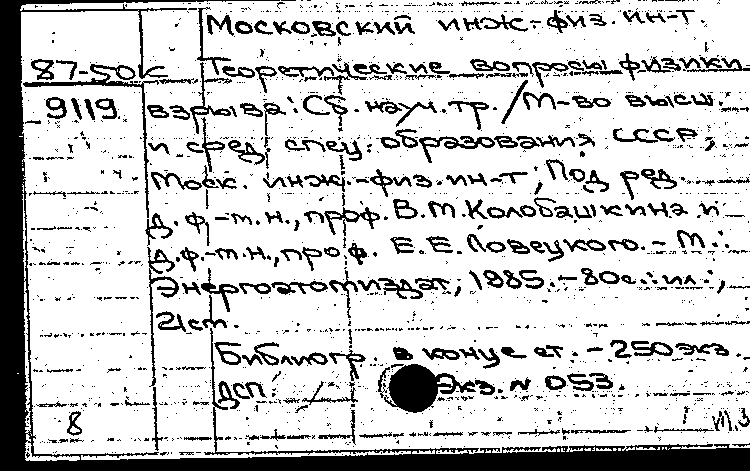 Московский инж.-физ. ин-т.
87-50к Теоретические вопросы физики
9119 взрыва: Сб. науч. тр. / М-во высш.
и сред. спец. образования СССР;
Моск. инж.-физ. ин-т; Под ред.
д.ф.-м.н., проф. В.М.Колобашкина и
д.ф.-м.н., проф. Е.Е.Ловецкого. - М.:
Энергоатомиздат, 1985. - 80с.: ил.;
21см.
Библиогр. в конце ст. - 250 экз.
ДСП. Экз. № 053.
8